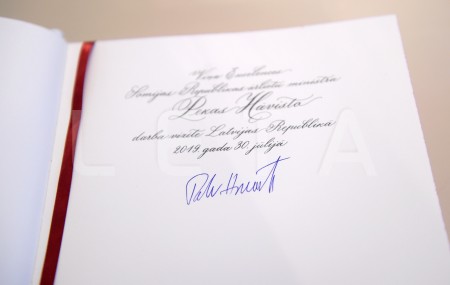 Viņa Ekselences
Somijas Republikas ārlietu ministra
Pekas Hāvisto
darba vizīte Latvijas Republikā
2019. gada 30. jūlijā
LETA